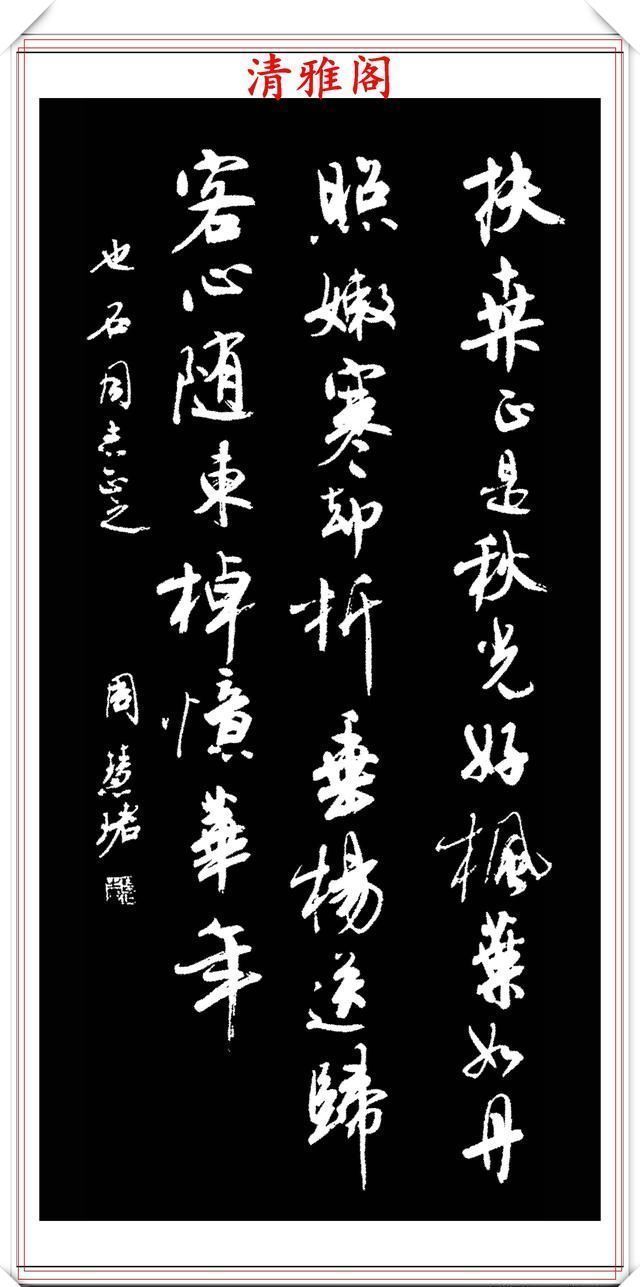 清雅阁
扶桒正是秋光好楓葉如丹
照嫩寒却折垂楊送歸
客心随東棹憶華年
也石同志正之 周慧珺